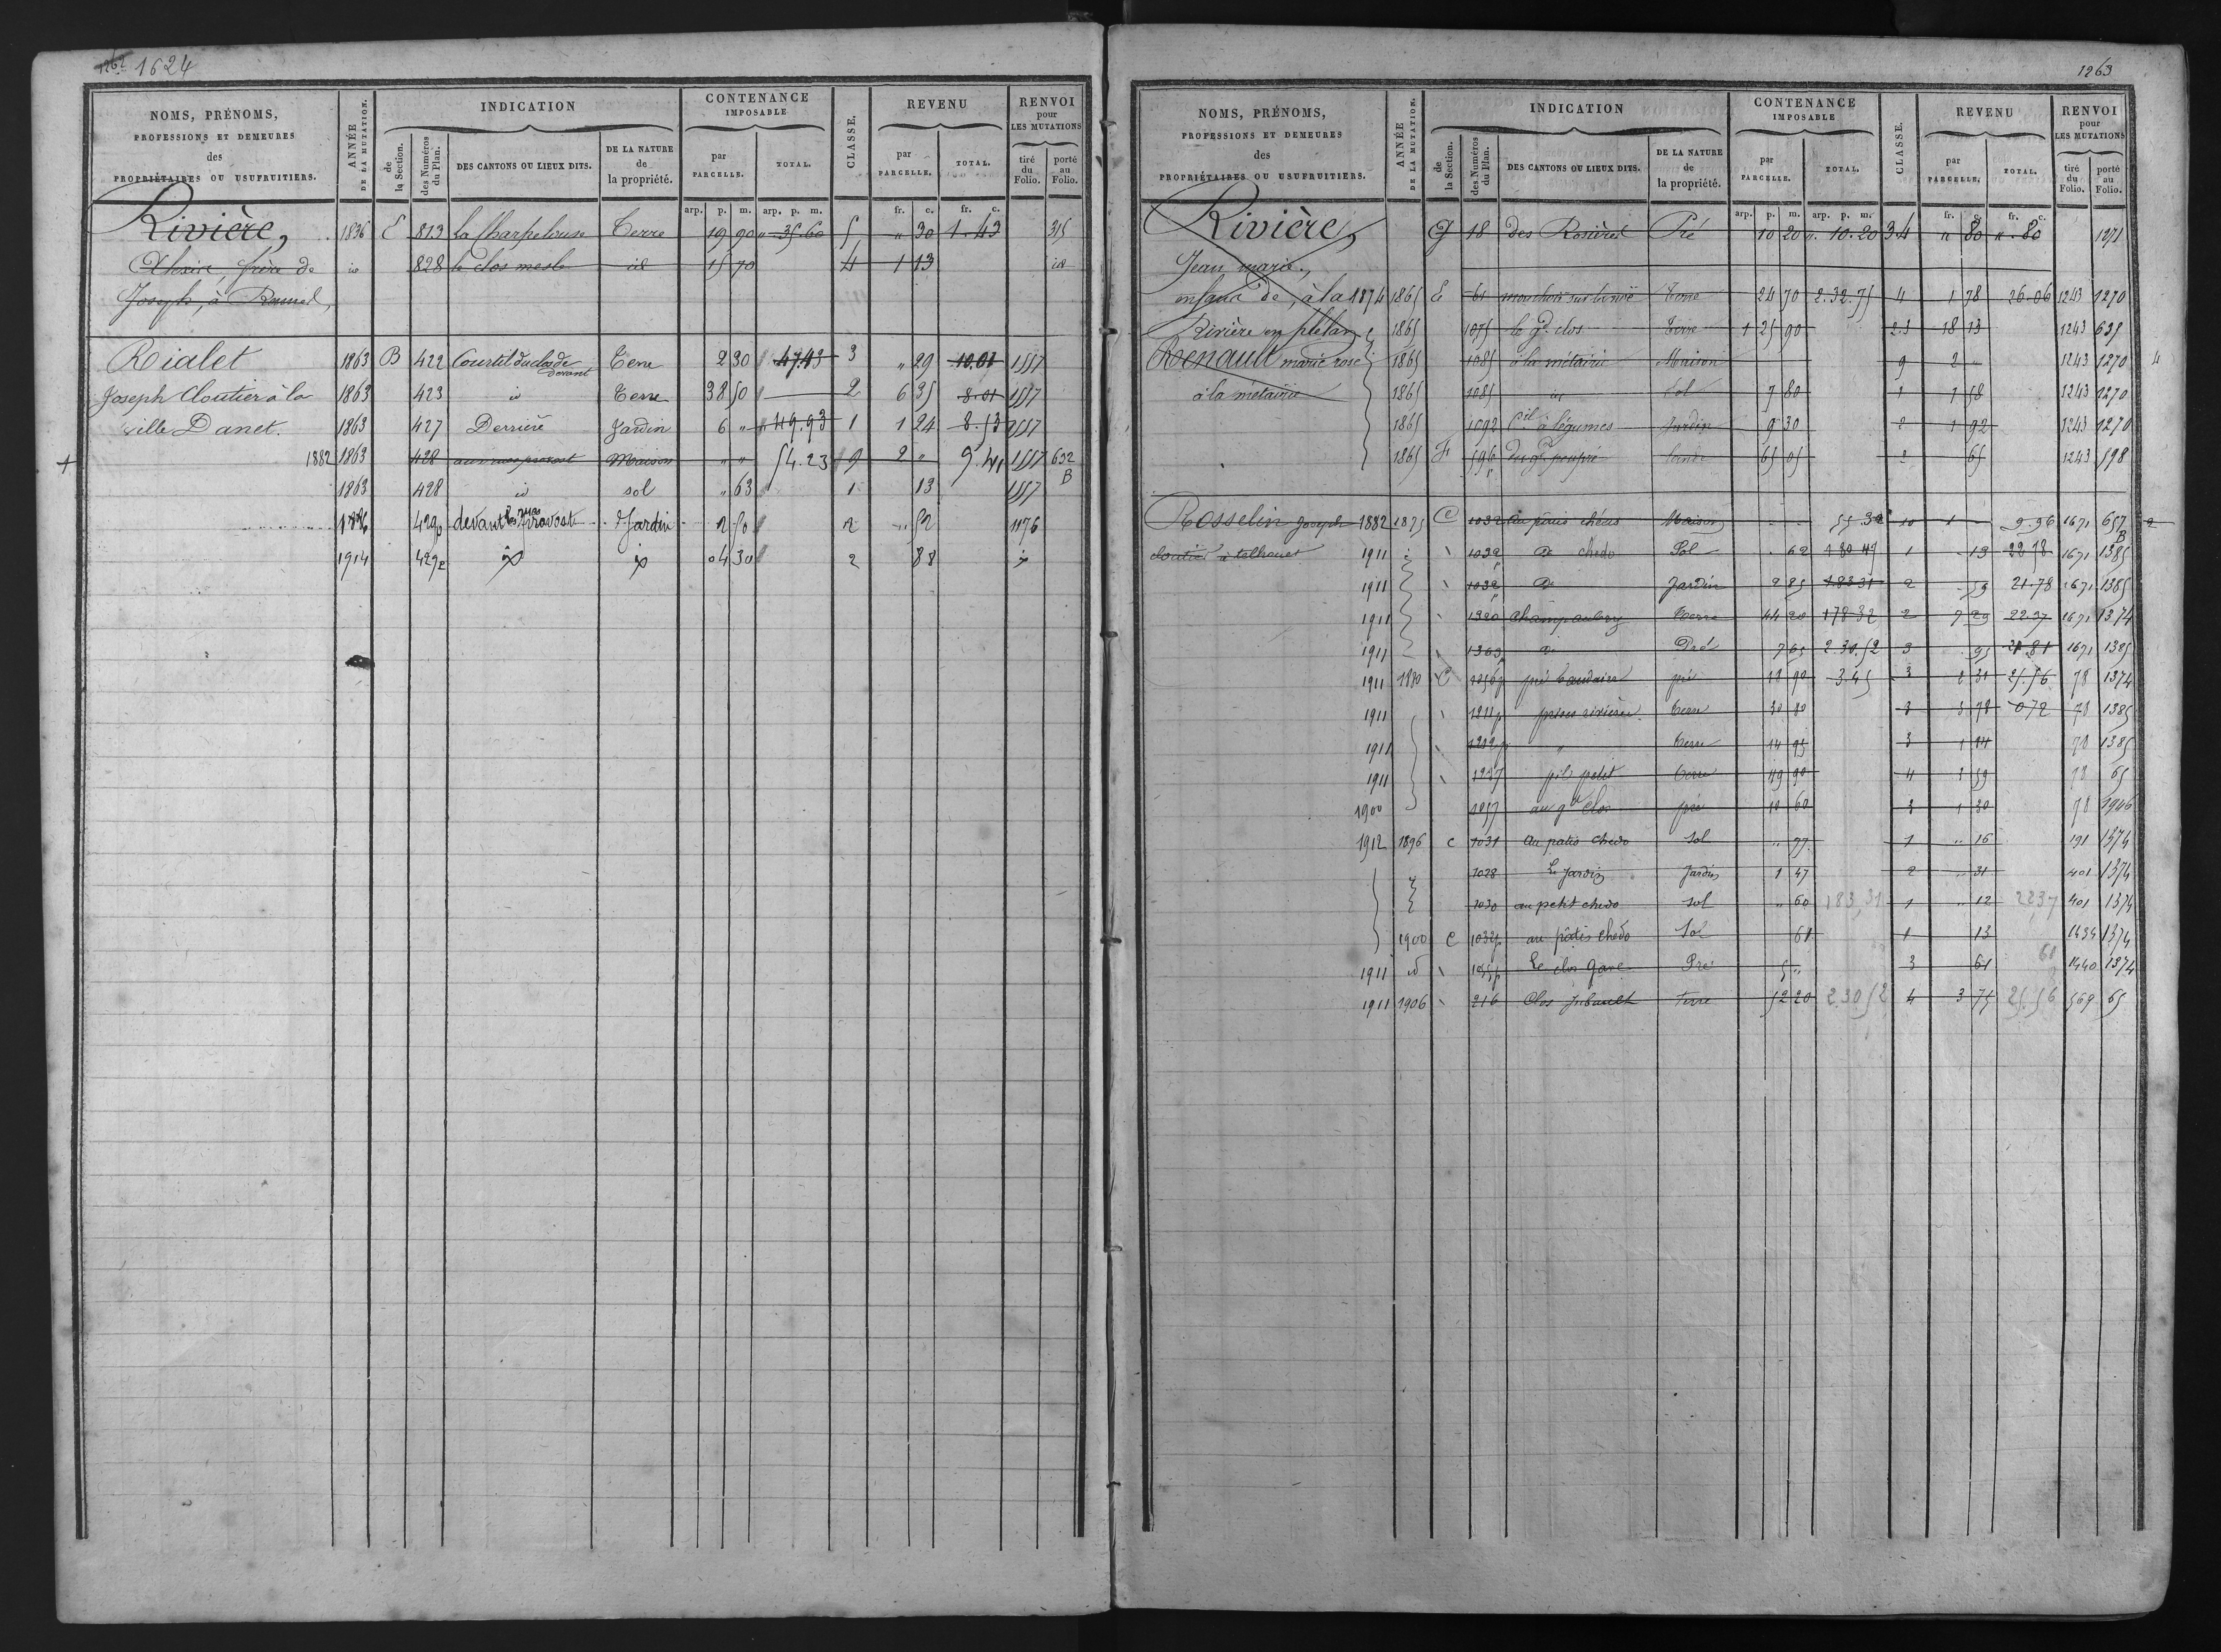 1262 1624
NOMS, PRÉNOMS, PROFESSIONS ET DEMEURES des PROPRIÉTAIRES OU USUFRUITIERS.
ANNÉE DE LA MUTATION.
INDICATION
de la Section.
des Numéros du Plan.
DES CANTONS OU LIEUX DITS.
DE LA NATURE de la propriété.
CONTENANCE IMPOSABLE
par PARCELLE.
TOTAL.
CLASSE.
REVENU
par PARCELLE.
TOTAL.
RENVOI pour LES MUTATIONS
tiré du Folio.
porté au Folio.
arp. p. m. arp. p. m. fr. c. fr. c.
Rivière, 1836 E 813 la Charpelouse Terre 19 90 " 35.60 5 " 30 1.43 315
frère de id 828 le clos mesle id 15 70 4 1 13 id
Joseph, à
Rialet 1863 B 422 Courtil du clos de devant Terre 2 30 47.43 3 " 29 10.01 1557
Joseph Cloutier à la 1863 423 id Terre 38 50 2 6 35 8.01 1557
ville Danet. 1863 427 Derrière Jardin 6 " 49.93 1 1 24 8.53 1557
1882 1863 428 Maison " " 54.23 9 2 " 9.41 1557 632 B
1863 428 id sol " 63 1 13 1557
429p devant les rues provost Jardin 2 50 2 " 52 1176
1914 429p id id 04 30 2 88 id
1263
NOMS, PRÉNOMS, PROFESSIONS ET DEMEURES des PROPRIÉTAIRES OU USUFRUITIERS.
ANNÉE DE LA MUTATION.
INDICATION
de la Section.
des Numéros du Plan.
DES CANTONS OU LIEUX DITS.
DE LA NATURE de la propriété.
CONTENANCE IMPOSABLE
par PARCELLE.
TOTAL.
CLASSE.
REVENU
par PARCELLE.
TOTAL.
RENVOI pour LES MUTATIONS
tiré du Folio.
porté au Folio.
arp. p. m. arp. p. m. fr. c. fr. c.
Rivière, G 18 des Rosières Pré 10 20 " 10.20 3.4 " 80 " 80 1271
Jean marie,
enfant de, à la 1874 1865 E 61 Terre 24 70 2.32.75 4 1 78 26.06 1243 1270
Rivière en plélan 1865 1075 le gd clos Terre 1 25 90 2.3 18 13 1243 635
Renault marie rose 1865 1085 à la métairie Maison 9 2 " 1243 1270 4
à la métairie 1865 1085 id Sol 7 80 1 1 58 1243 1270
1865 1092 Ctil à légumes Jardin 9 30 2 1 92 1243 1270
1865 F 596p 65 05 2 65 1243 598
Rosselin Joseph 1882 1875 C 1032 Maison 55.32 10 1 9.96 1671 657 B 2
cloutier à telhouet 1911 1032p do chedo Sol 62 180 49 1 13 22 18 1671 1385
1911 1032p do Jardin 2 85 183 31 2 59 21.78 1671 1385
1911 1320 Champ aubry Terre 44 20 178 32 2 7 29 22.37 1671 1374
1911 1363p do Pré 7 65 2.30.52 3 95 21 81 1671 1385
1911 1890 C pré pré 18 90 3.45 3 2 31 25.56 78 1374
1911 1211p Terre 30 80 3 3 78 072 78 1385
1911 " Terre 14 95 3 1 84 78 1385
1911 petit Terre 49 90 4 3 59 78 65
1900 1257 au gd clos pré 10 60 3 1 30 78 1906
1912 1896 C 1031 Au patis chedo Sol " 77 1 " 16 191 1374
1028 Le Jardin Jardin 1 47 2 " 31 401 1374
1030 au petit chedo sol " 60 183,31 1 " 12 22 37 401 1374
1900 C 1032p au pâtis chedo Sol 61 1 13 1434 1374
1911 id Le clos Gare Pré 5 " 3 61 61 1440 1374
1911 1906 216 Clos Terre 52 20 2.30 52 4 3 75 25.56 569 65